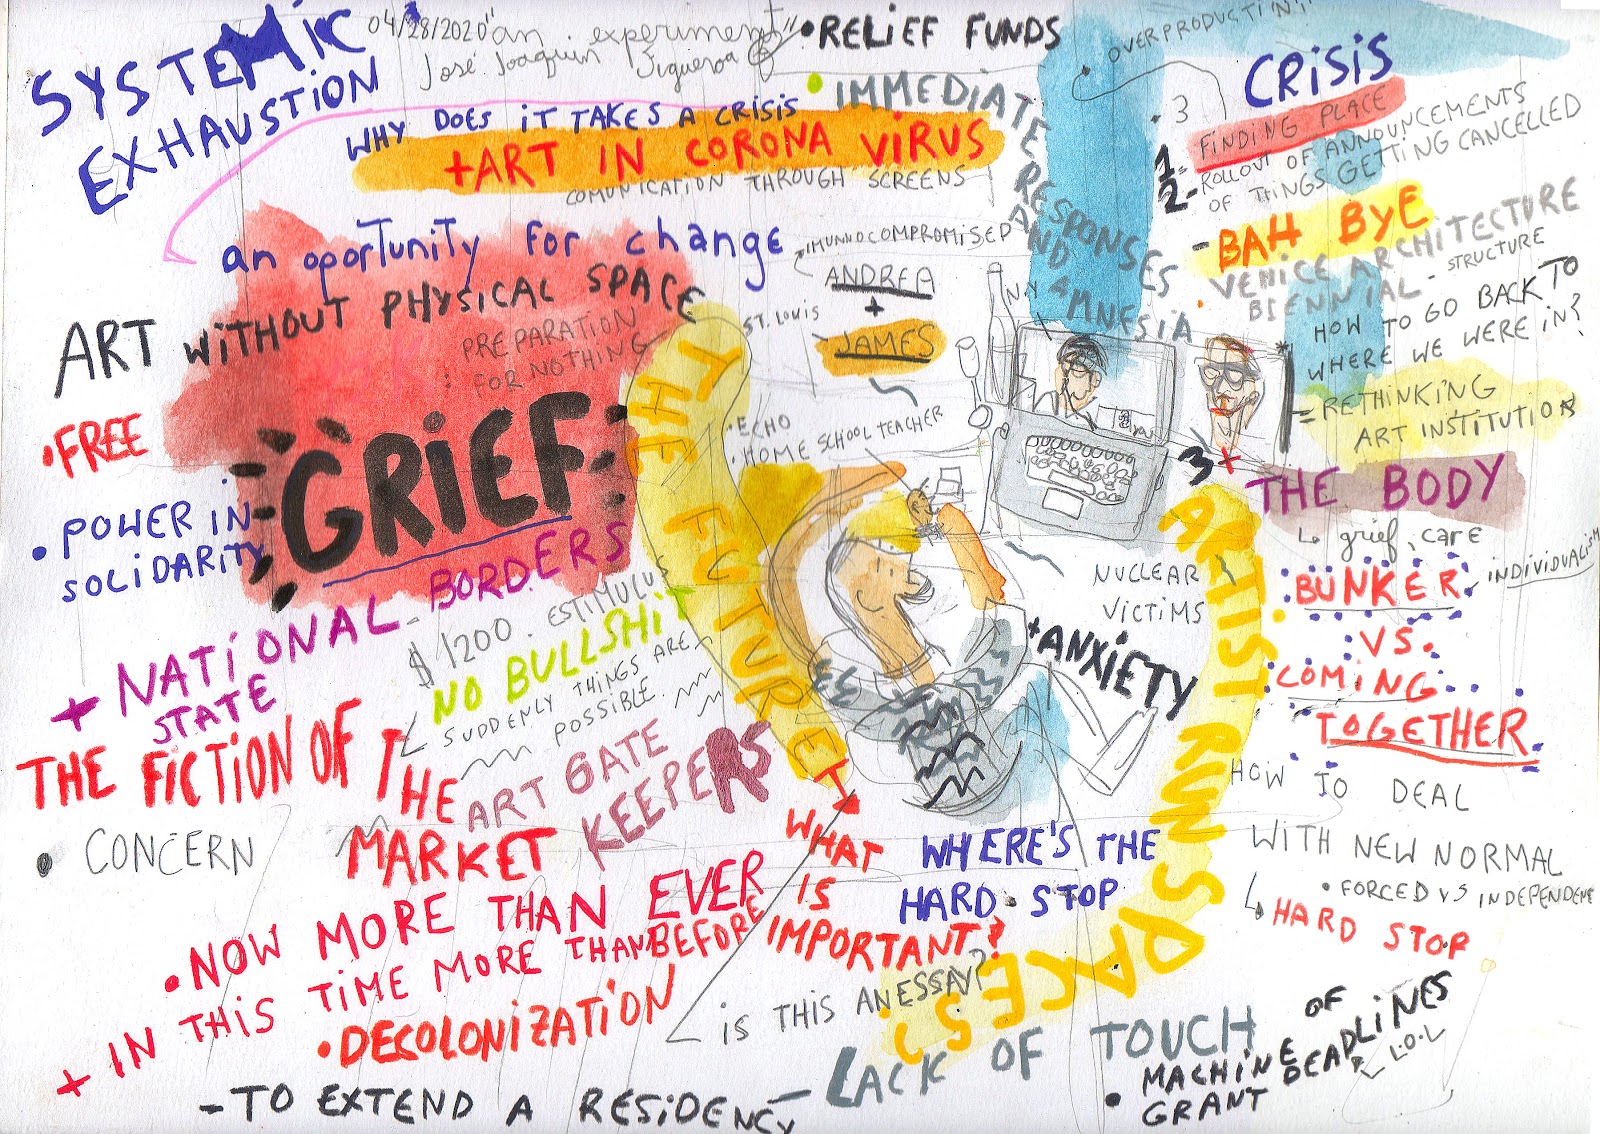 SYSTEMIC
EXHAUSTION
04/28/2020 "an experiment"
José Joaquin Figueroa
• RELIEF FUNDS
• IMMEDIATE
RESPONSES
AND AMNESIA
WHY DOES iT TAKES A CRISIS
+ART IN CORONA VIRUS
COMUNICATION THROUGH SCREENS
an oportunity for change
ART WITHOUT PHYSICAL SPACE
PREPARATION
FOR NOTHING
GRIEF
• FREE
• POWER IN
SOLIDARITY
+ NATIONAL BORDERS
STATE
$1200. ESTIMULUS
NO BULLSHIT
SUDDENLY THINGS ARE
POSSIBLE.
THE FICTION OF THE
MARKET
ART GATE
KEEPERS
• CONCERN
• NOW MORE THAN EVER
+ IN THIS TIME MORE THAN BEFORE
• DECOLONIZATION
- TO EXTEND A RESIDENCY
IMUNNOCOMPROMISED
ANDREA
+
JAMES
ST. LOUIS
N.Y
• ECHO
• HOME SCHOOL TEACHER
THE FUTURE
WHAT
IS
IMPORTANT?
IS THIS AN ESSAY?
WHERE'S THE
HARD STOP
LACK OF TOUCH
NUCLEAR
VICTIMS
+ANXIETY
ARTIST RUN SPACES
OVERPRODUCTION!!
3
CRISIS
1- FINDING PLACE
2- ROLLOUT OF ANNOUNCEMENTS
OF THINGS GETTING CANCELLED
- BAH BYE
VENICE ARCHITECTURE
BIENNIAL
- STRUCTURE
HOW TO GO BACK TO
WHERE WE WERE IN?
= RETHINKING
ART INSTITUTION
3+
THE BODY
grief, care
BUNKER
- INDIVIDUALISM
VS.
COMING
TOGETHER
HOW TO DEAL
WITH NEW NORMAL
• FORCED VS INDEPENDENT
HARD STOP
• MACHINE OF
GRANT DEADLINES
L.O.L